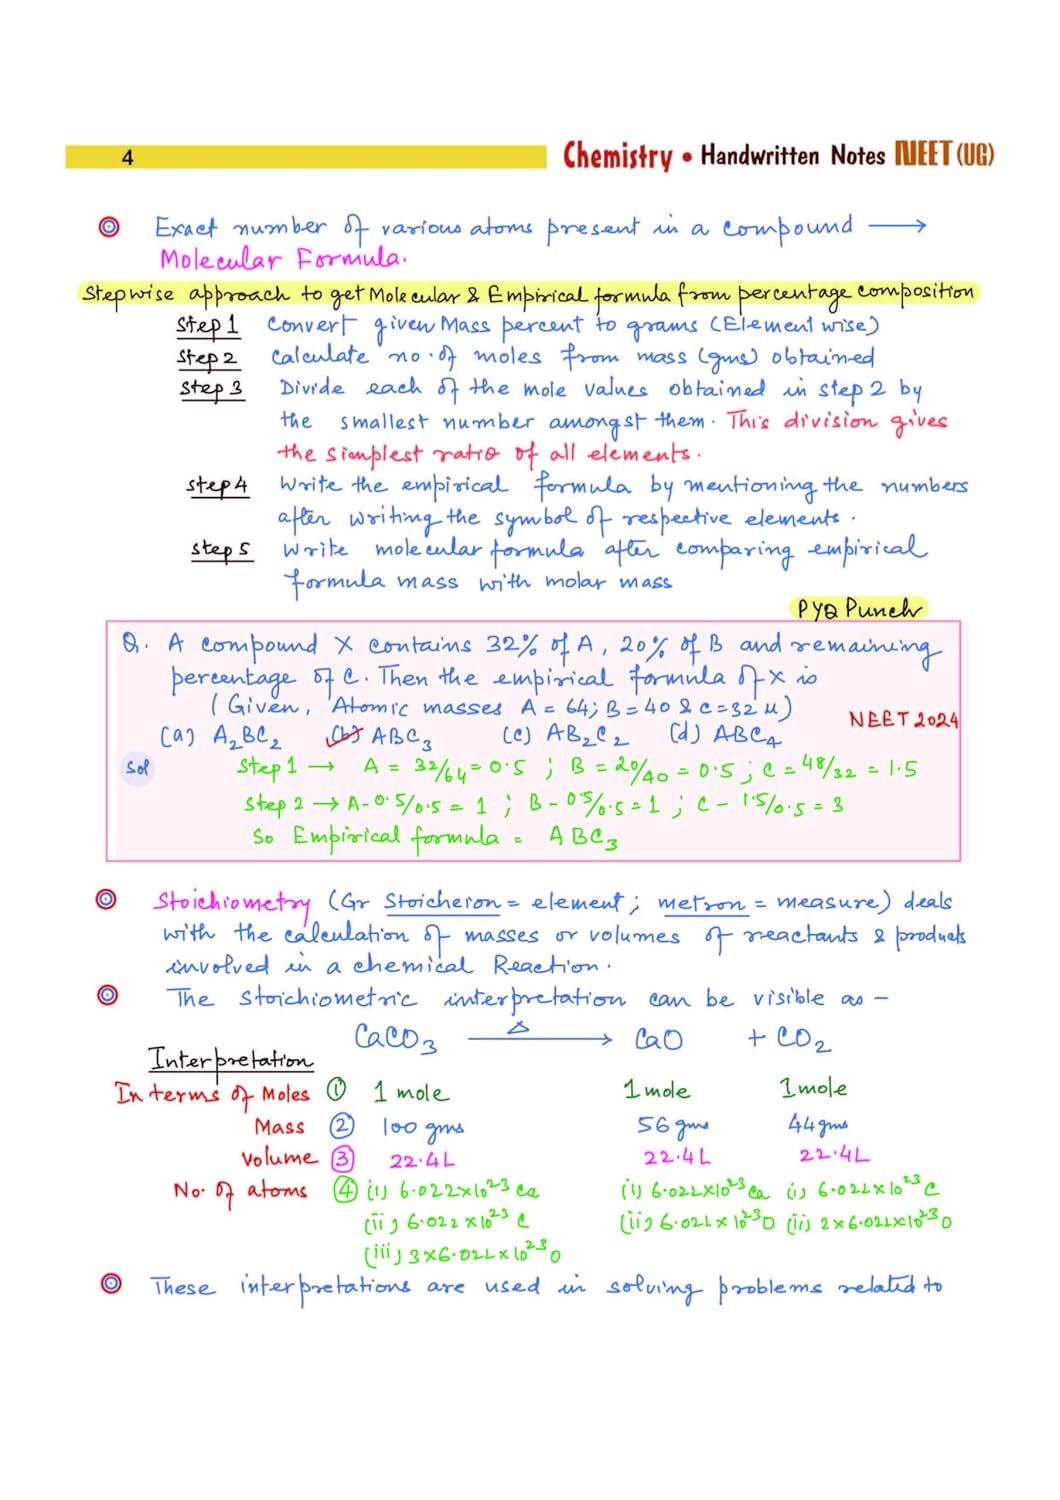 4
Chemistry • Handwritten Notes NEET (UG)
Exact number of various atoms present in a compound ⟶
Molecular Formula.
Stepwise approach to get Molecular & Empirical formula from percentage composition
Step 1 Convert given Mass percent to grams (Element wise)
Step 2 Calculate no. of moles from mass (gms) obtained
Step 3 Divide each of the mole values obtained in step 2 by
the smallest number amongst them. This division gives
the simplest ratio of all elements.
Step 4 Write the empirical formula by mentioning the numbers
after writing the symbol of respective elements.
Step 5 Write molecular formula after comparing empirical
formula mass with molar mass
PYQ Punch
Q. A compound X contains 32% of A, 20% of B and remaining
percentage of C. Then the empirical formula of X is
(Given, Atomic masses A = 64; B = 40 & C = 32 u)
NEET 2024
(a) A₂BC₂ (b) ABC₃ (c) AB₂C₂ (d) ABC₄
Sol Step 1 → A = 32/64 = 0.5 ; B = 20/40 = 0.5 ; C = 48/32 = 1.5
Step 2 → A - 0.5/0.5 = 1 ; B - 0.5/0.5 = 1 ; C - 1.5/0.5 = 3
So Empirical formula = ABC₃
Stoichiometry (Gr Stoicheion = element; metron = measure) deals
with the calculation of masses or volumes of reactants & products
involved in a chemical Reaction.
The stoichiometric interpretation can be visible as -
CaCO₃ —Δ→ CaO + CO₂
Interpretation
In terms of Moles ① 1 mole 1 mole 1 mole
Mass ② 100 gms 56 gms 44 gms
Volume ③ 22.4L 22.4L 22.4L
No. of atoms ④ (i) 6.022×10²³ Ca (i) 6.022×10²³ Ca (i) 6.022×10²³ C
(ii) 6.022×10²³ C (ii) 6.022×10²³ O (ii) 2×6.022×10²³ O
(iii) 3×6.022×10²³ O
These interpretations are used in solving problems related to